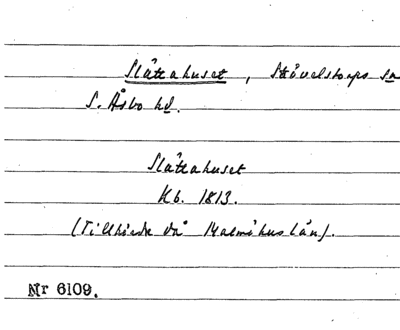 Slättahuset, Stövelstorps sn
S. Åsbo hd.
Slättahuset
Hb. 1813.
(Tillhörde då Malmöhus län).
Nr 6109.